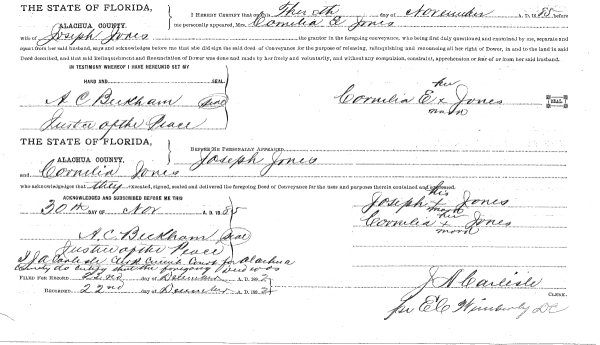 THE STATE OF FLORIDA,
ALACHUA COUNTY.
I HEREBY CERTIFY that on this day of November A. D. 1885 before
me personally appeared, Mrs. Cornilia E Jones
wife of Joseph Jones the grantor in the foregoing conveyance, who being first duly questioned and examined by me, separate and
apart from her said husband, says and acknowledges before me that she did sign the said deed of Conveyance for the purpose of releasing, relinquishing and renouncing all her right of Dower, in and to the land in said
Deed described, and that said Relinquishment and Renunciation of Dower was done and made by her freely and voluntarily, and without any compulsion, constraint, apprehension or fear of or from her said husband.
IN TESTIMONY WHEREOF I HAVE HEREUNTO SET MY
HAND AND SEAL
A. C. Beckham Seal
Justice of the Peace
her
Cornilia E x Jones SEAL
mark
THE STATE OF FLORIDA,
ALACHUA COUNTY.
BEFORE ME PERSONALLY APPEARED
Joseph Jones
and Cornilia Jones
who acknowledged that they executed, signed, sealed and delivered the foregoing Deed of Conveyance for the uses and purposes therein contained and expressed.
ACKNOWLEDGED AND SUBSCRIBED BEFORE ME THIS
30th DAY OF Nov A. D. 1885
his
Joseph x Jones
mark
her
Cornilia x Jones
mark
A. C. Beckham Seal
Justice of the Peace
I J. A. Carlisle Clerk Circuit Court for Alachua
County do certify that the foregoing Deed was
FILED FOR RECORD 22nd day of December A. D. 188
RECORDED 22nd day of December A. D. 188
J A Carlisle
CLERK.
per E. C. Wimberly DC